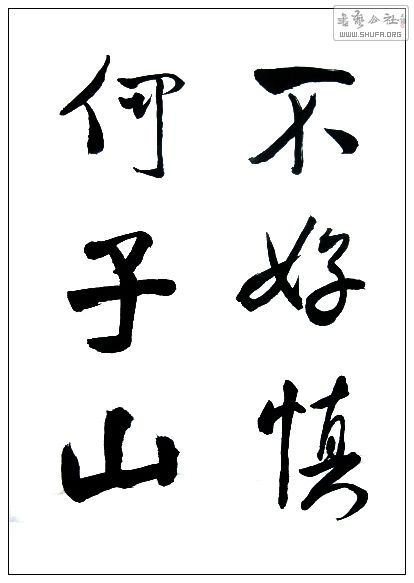 不好慎
何子山
书艺公社
WWW.SHUFA.ORG